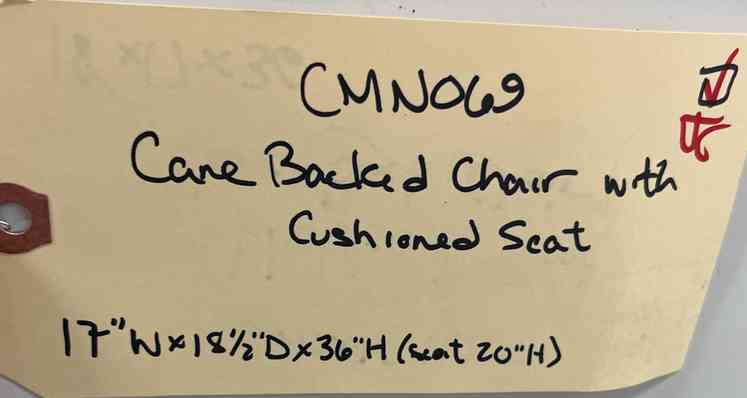 CMN069
Cane Backed Chair with
Cushioned Seat
17"W x 18½"D x 36"H (seat 20"H)